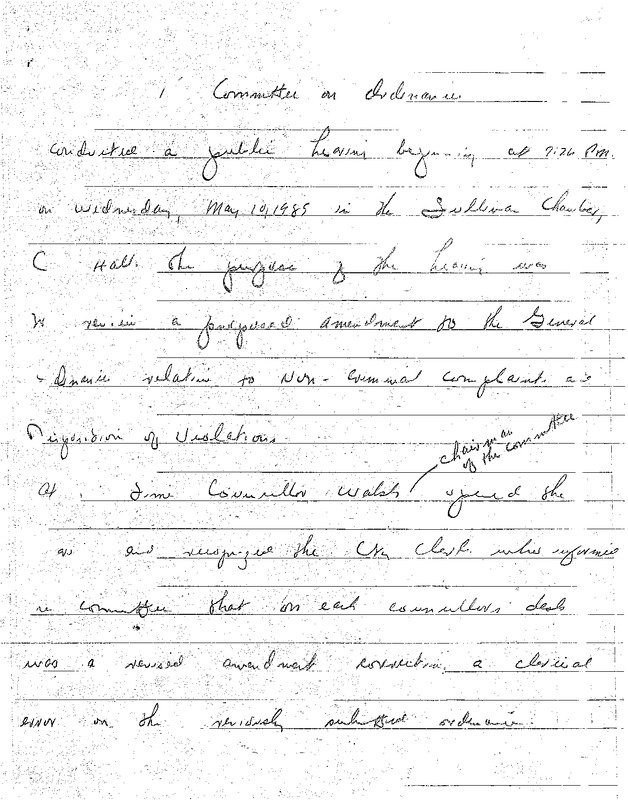 Committee on Ordinance
conducted a public hearing beginning at 7:26 P.M.
on Wednesday, May 10, 1989 in the Sullivan Chamber,
C Hall. The purpose of the hearing was
to review a proposed amendment to the General
dinance relative to Non-Criminal Complaint as
Disposition of Violations
chairman
of the committee
At time Councillor Walsh opened the
and recognized the City Clerk who informed
committee that on each councillors desk
was a revised amendment correcting a clerical
error on the reviously submitted ordinance.